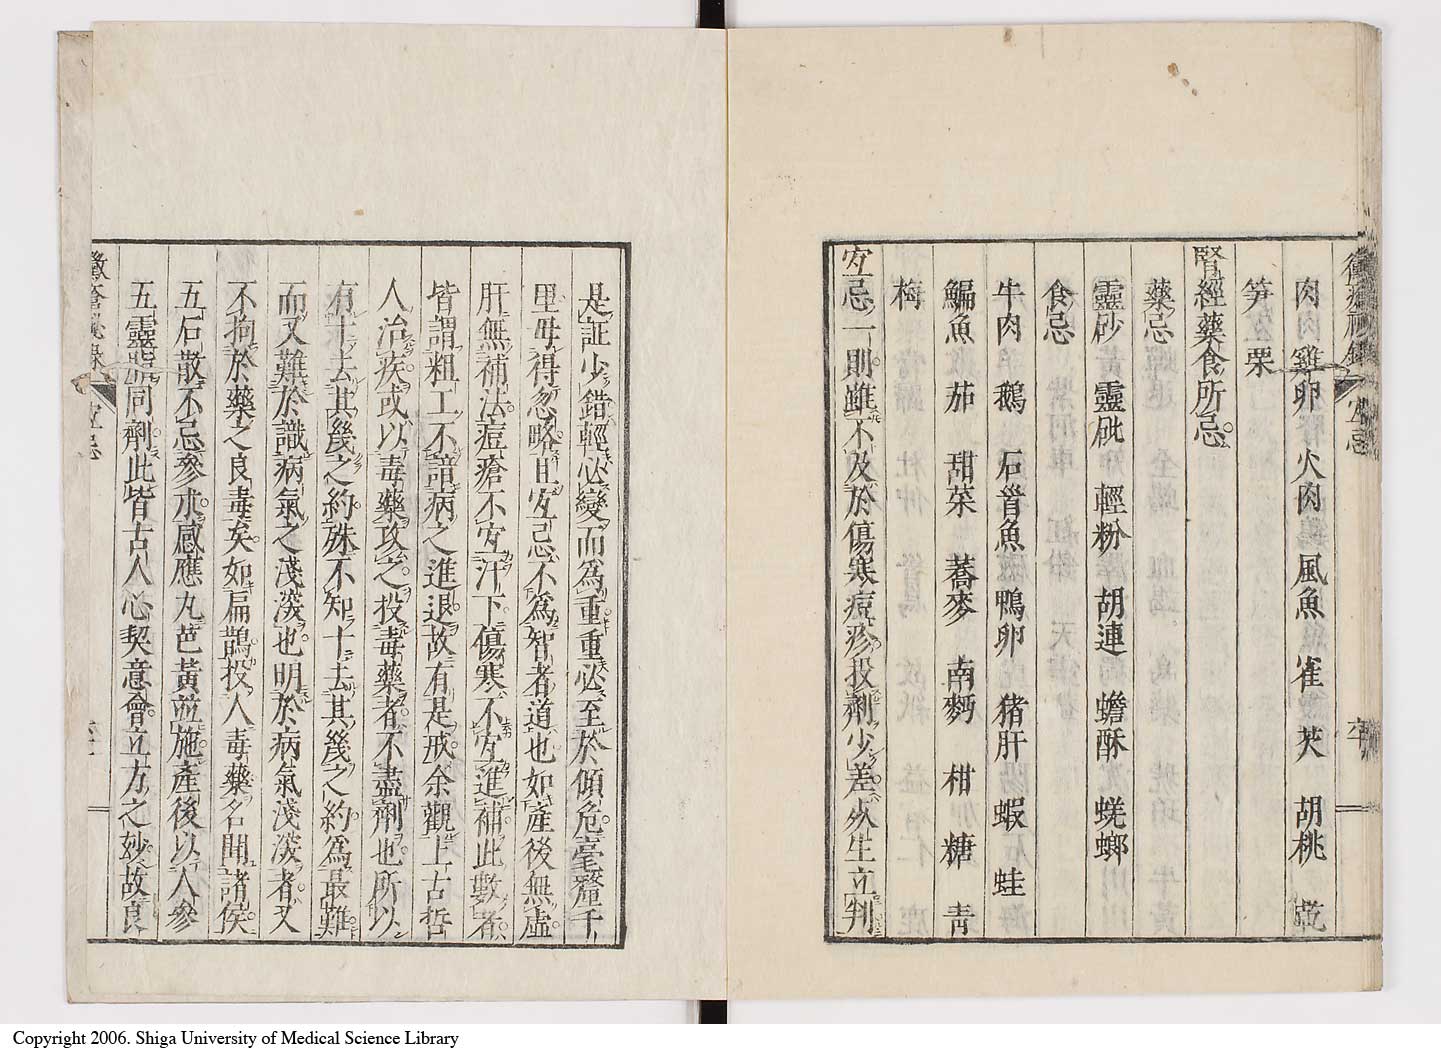 黴瘡秘録 宜忌
肉 雞卵 火肉 風魚 雀 芡 胡桃
笋 栗
腎經藥食所忌
藥忌
靈砂 靈砒 輕粉 胡連 蟾酥 蜣螂
食忌
牛肉 鵝 石首魚 鴨卵 猪肝 蝦 蛙
鯿魚 茄 甜菜 蕎麥 南麪 柑 糖 靑
梅
宜忌一則雖不及於傷寒痘疹投劑少差死生立判
是証少錯輕必變而為重重必至於傾危毫釐千
里毋得忽略且宜忌不爲智者道也如產後無虛
肝無補法痘瘡不宜汗下傷寒不宜進補此數者
皆謂粗工不諳病之進退故有是戒余觀上古哲
人治疾或以毒藥攻之投毒藥者不盡劑也所以
有十去其幾之約殊不知十去其幾之約爲最難
而又難於識病氣之淺深也明於病氣淺深者又
不拘於藥之良毒矣如扁鵲投人毒藥名聞諸侯
五石散不忌參朮感應丸芭黃並施產後以人參
五靈脂同劑此皆古人心契意會立方之妙故良
黴瘡秘錄 宜忌